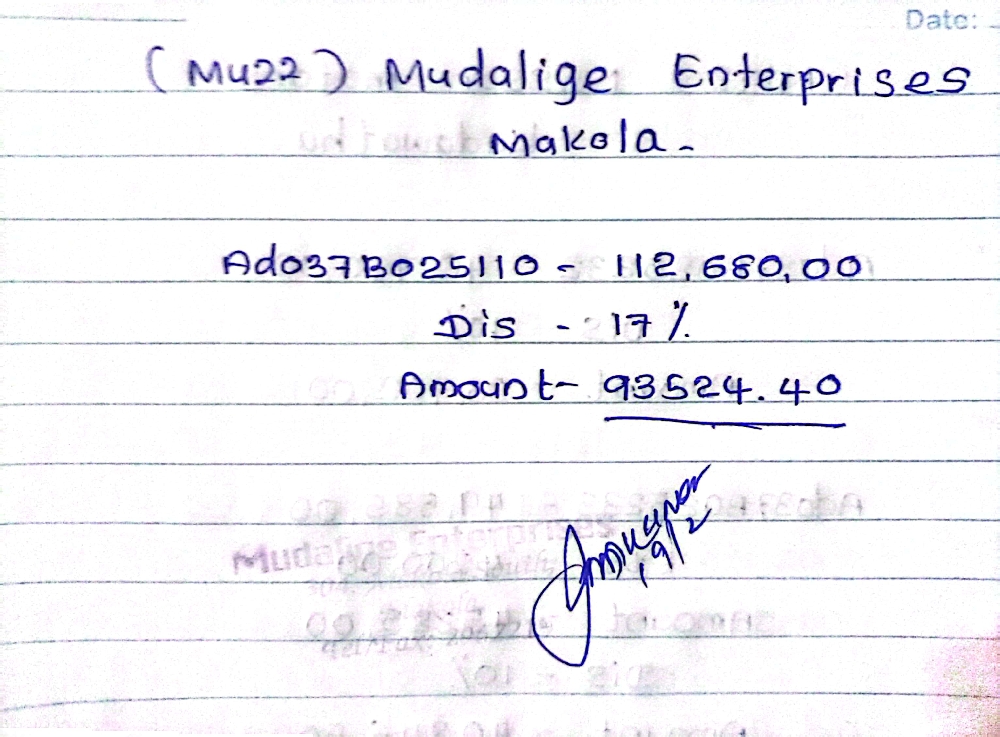 Date:
(Mu22) Mudalige Enterprises
Makola-
Ado37B025110 - 112,680,00
Dis - 17%
Amount- 93524.40
19/2
Mudalige Enterprises